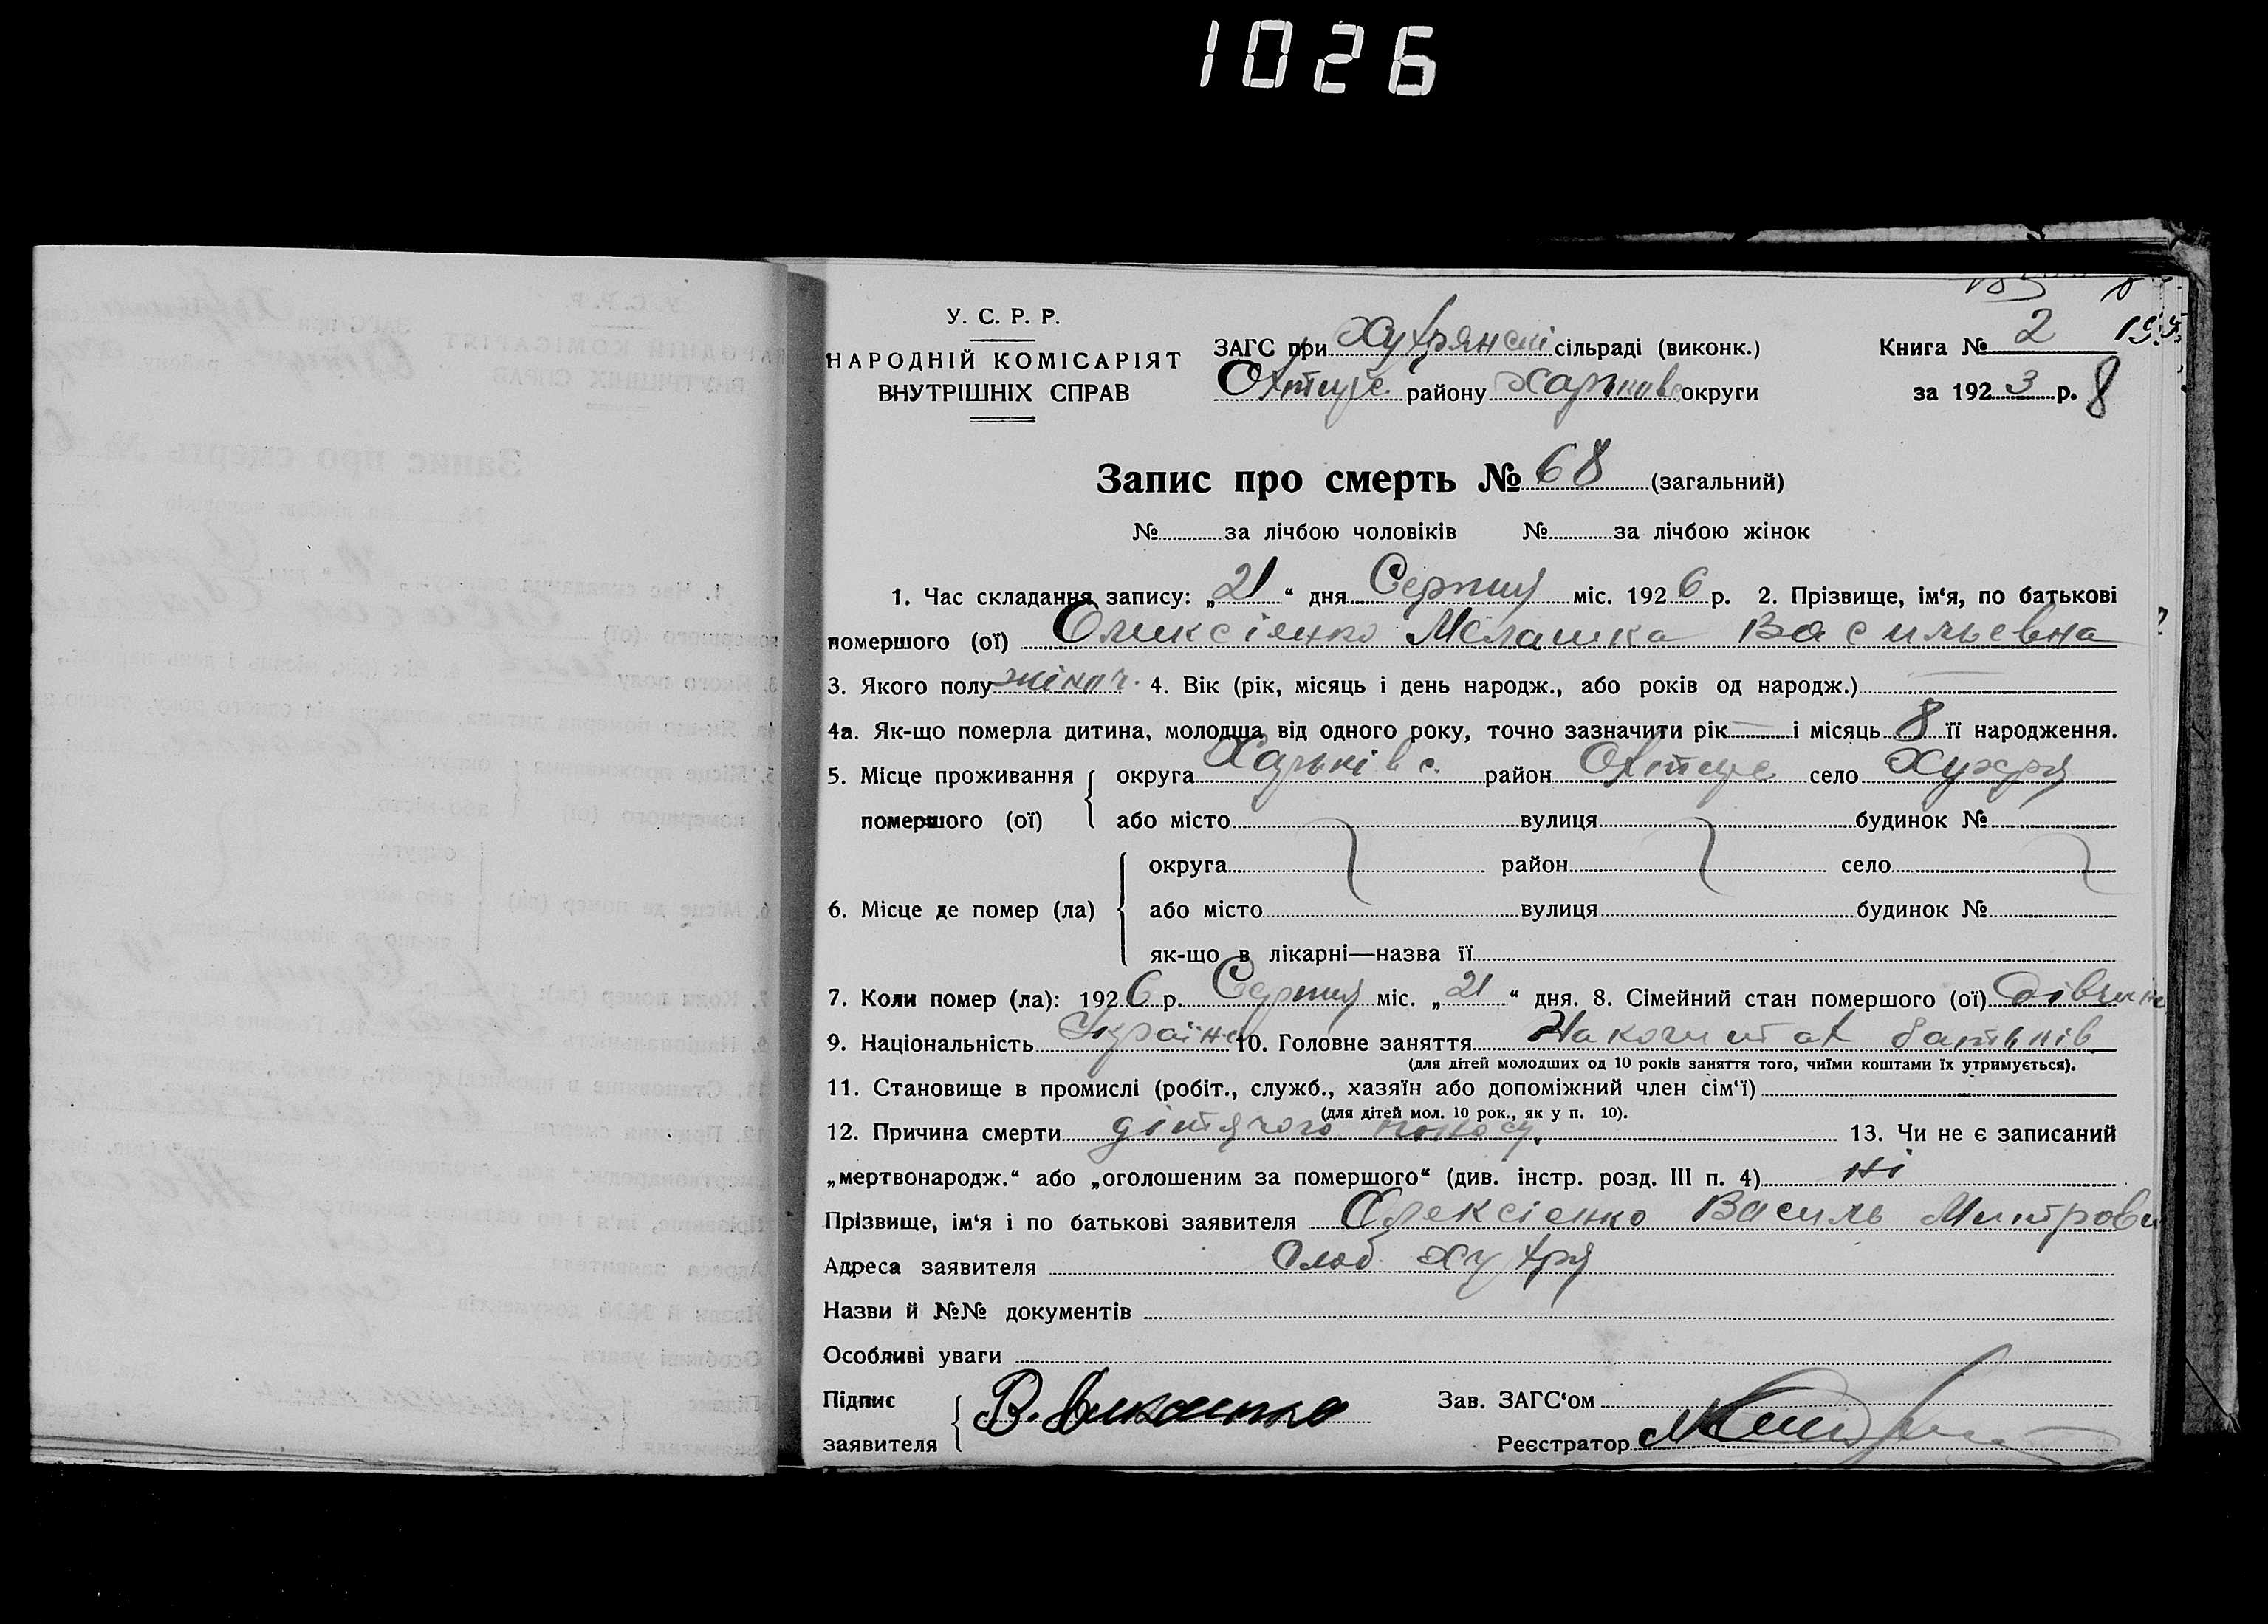 1026
У. С. Р. Р.
НАРОДНІЙ КОМІСАРІЯТ
ВНУТРІШНІХ СПРАВ
ЗАГС при Хухрянскі сільраді (виконк.)
Охтирс. району Харьківс округи
Книга № 2
за 1923 р. 8
Запис про смерть № 68 (загальний)
№ за лічбою чоловіків № за лічбою жінок
1. Час складання запису: „21“ дня Серпня міс. 1926 р. 2. Прізвище, ім‘я, по батькові
помершого (ої) Оликсієнко Мелашка Васильевна
3. Якого полу жіноч. 4. Вік (рік, місяць і день народж., або років од народж.)
4а. Як-що померла дитина, молодша від одного року, точно зазначити рік — і місяць 8 її народження.
5. Місце проживання помершого (ої) округа Харьківс. район Охтирс село Хухря
або місто вулиця будинок №
6. Місце де помер (ла) округа район село
або місто вулиця будинок №
як-що в лікарні—назва її
7. Коли помер (ла): 1926 р. Серпня міс. „21“ дня. 8. Сімейний стан помершого (ої) дівчин
9. Національність Україн 10. Головне заняття На коштах батьків
(для дітей молодших од 10 років заняття того, чиїми коштами їх утримується).
11. Становище в промислі (робіт., служб., хазяїн або допоміжний член сім‘ї)
(для дітей мол. 10 рок., як у п. 10).
12. Причина смерти дітячого поносу. 13. Чи не є записаний
„мертвонародж.“ або „оголошеним за помершого“ (див. інстр. розд. III п. 4) ні
Прізвище, ім‘я і по батькові заявителя Олексієнко Василь Митрови
Адреса заявителя Слоб. Хухря
Назви й №№ документів
Особливі уваги
Підпис заявителя В. Зав. ЗАГС‘ом
Реєстратор